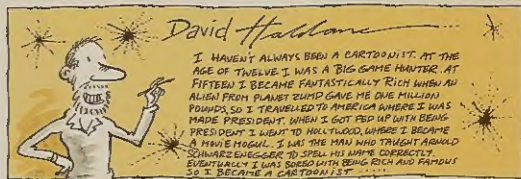 David Haldane
I HAVEN'T ALWAYS BEEN A CARTOONIST. AT THE
AGE OF TWELVE I WAS A BIG GAME HUNTER. AT
FIFTEEN I BECAME FANTASTICALLY RICH WHEN AN
ALIEN FROM PLANET ZUMP GAVE ME ONE MILLION
POUNDS, SO I TRAVELLED TO AMERICA WHERE I WAS
MADE PRESIDENT. WHEN I GOT FED UP WITH BEING
PRESIDENT I WENT TO HOLLYWOOD, WHERE I BECAME
A MOVIE MOGUL. I WAS THE MAN WHO TAUGHT ARNOLD
SCHWARZENEGGER TO SPELL HIS NAME CORRECTLY.
EVENTUALLY I WAS BORED WITH BEING RICH AND FAMOUS
SO I BECAME A CARTOONIST.....